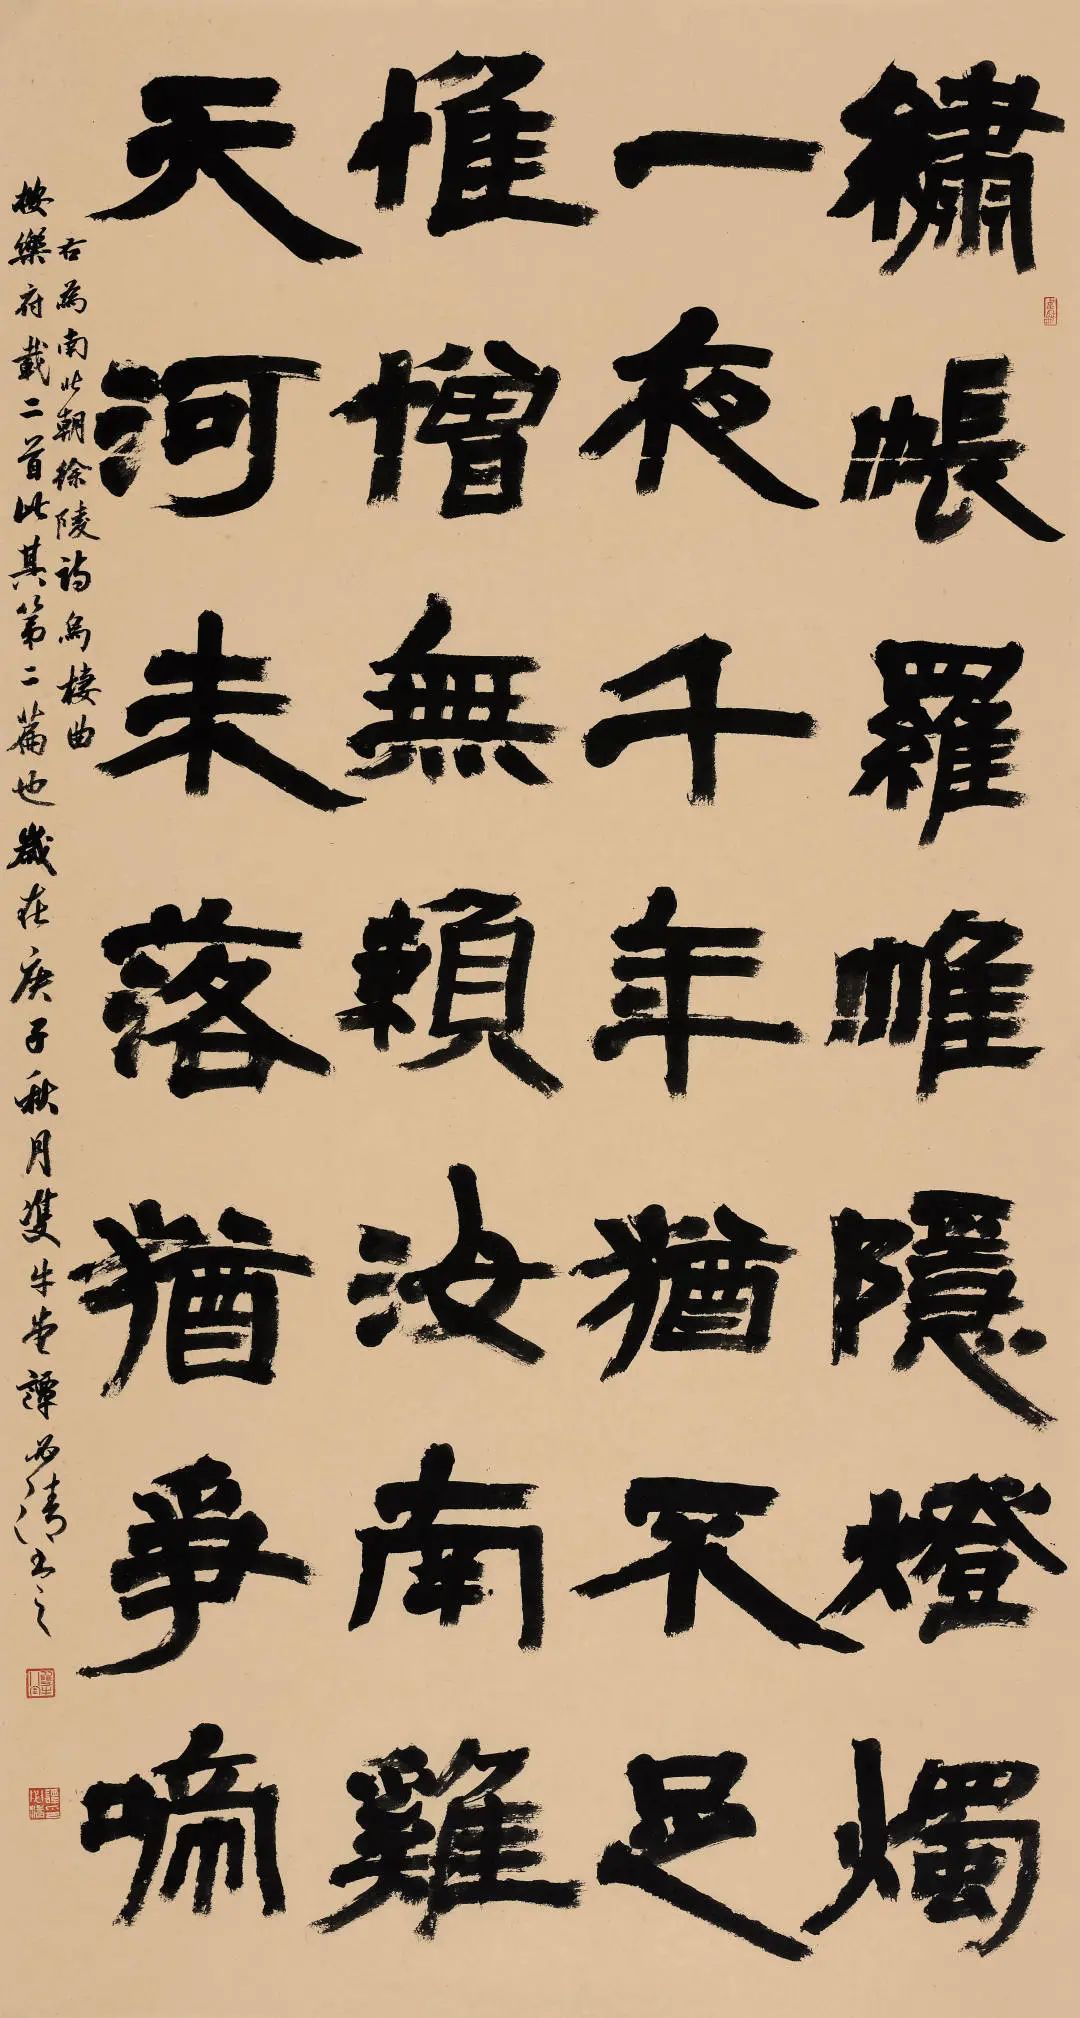 繡帳羅帷隱燈燭
一夜千年猶不足
惟憎無賴汝南雞
天河未落猶爭啼
右為南北朝徐陵詩烏棲曲
按樂府載二首此其第二篇也歲在庚子秋月雙牛堂譚清書之